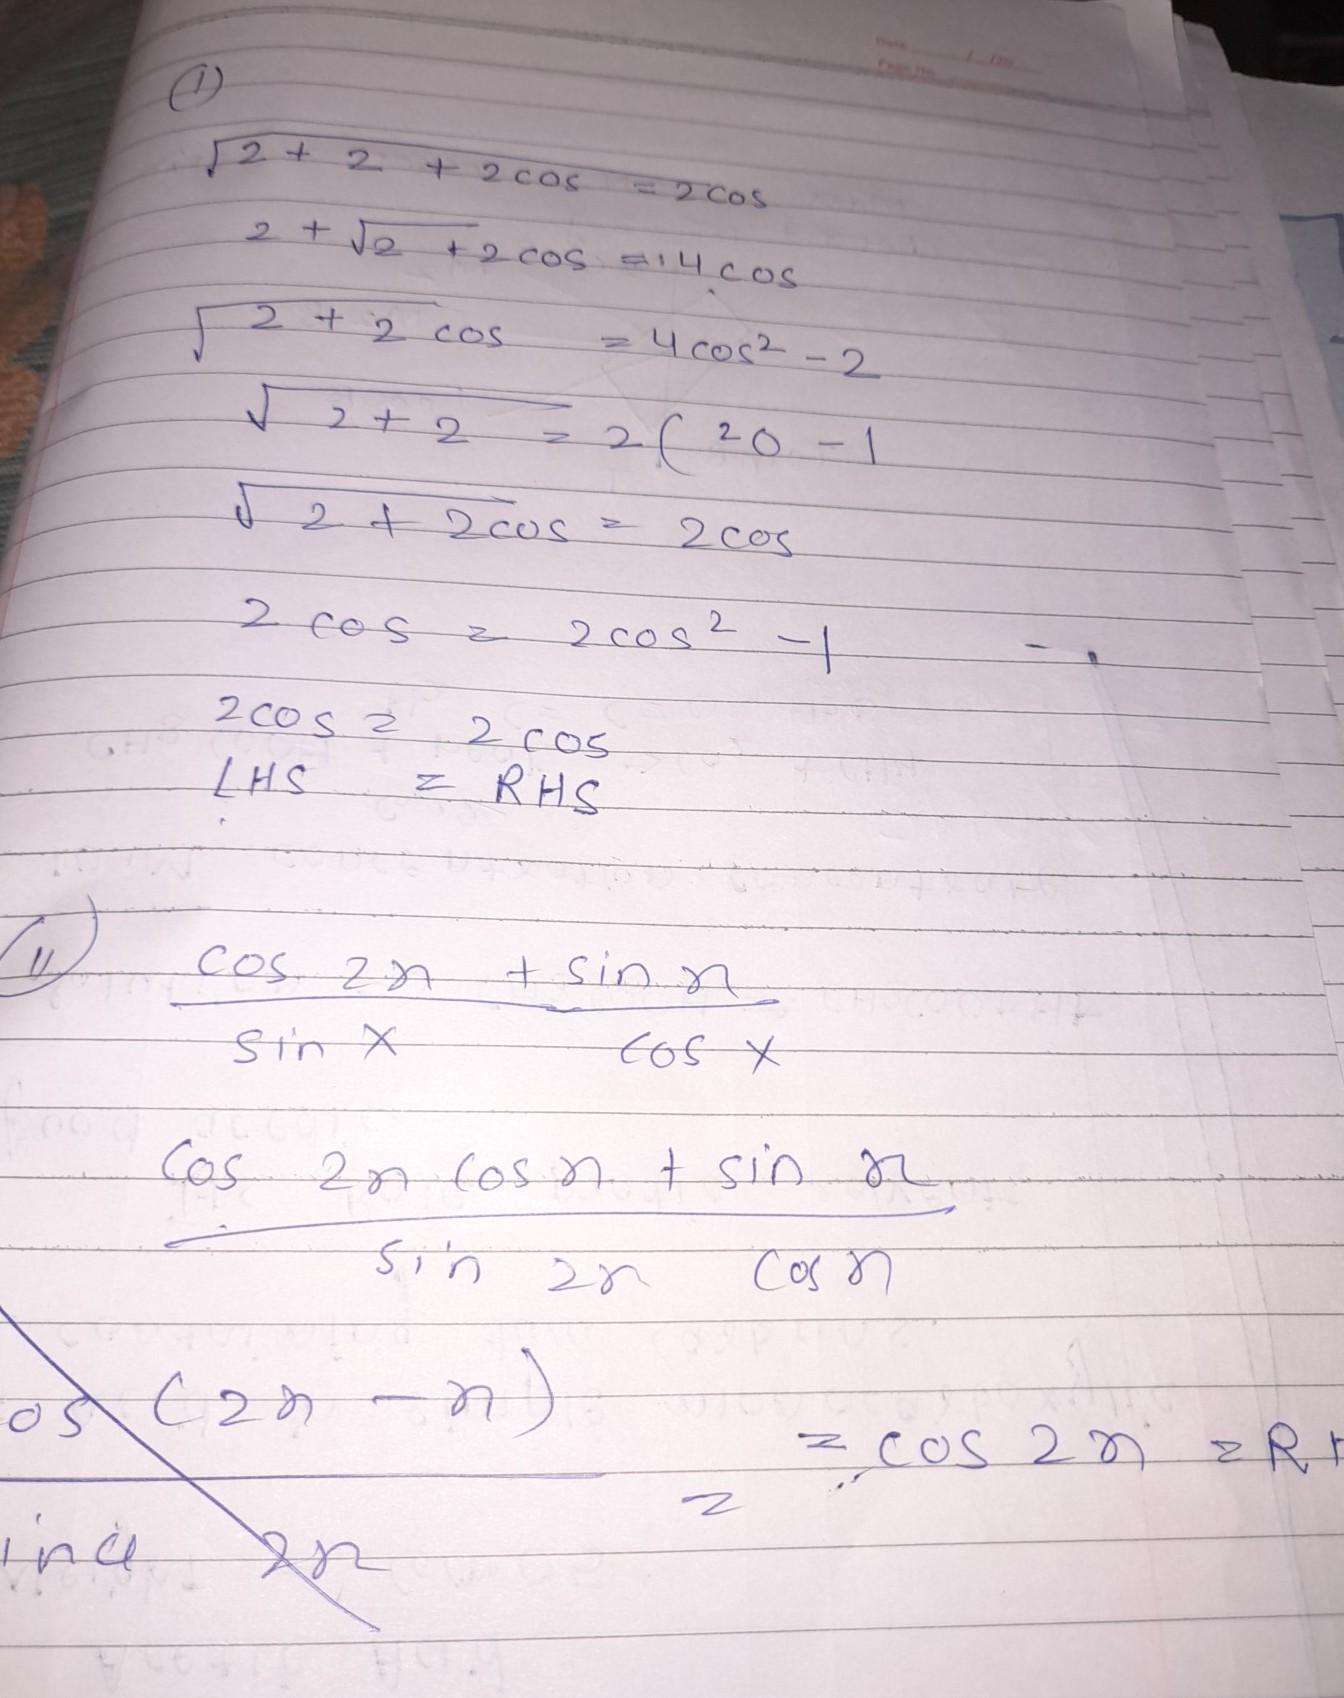 (1)
√2 + 2 + 2 cos = 2 cos
2 + √2 + 2 cos = 4 cos
√2 + 2 cos = 4 cos² - 2
√2 + 2 = 2 ( 20 - 1
√2 + 2cos = 2 cos
2 cos = 2 cos² - 1
2 cos = 2 cos
LHS = RHS
(11)
cos 2x + sin x
sin x cos x
Cos 2x cos x + sin x
sin 2x cos x
os (2x - x)
= cos 2x = R
=
2x